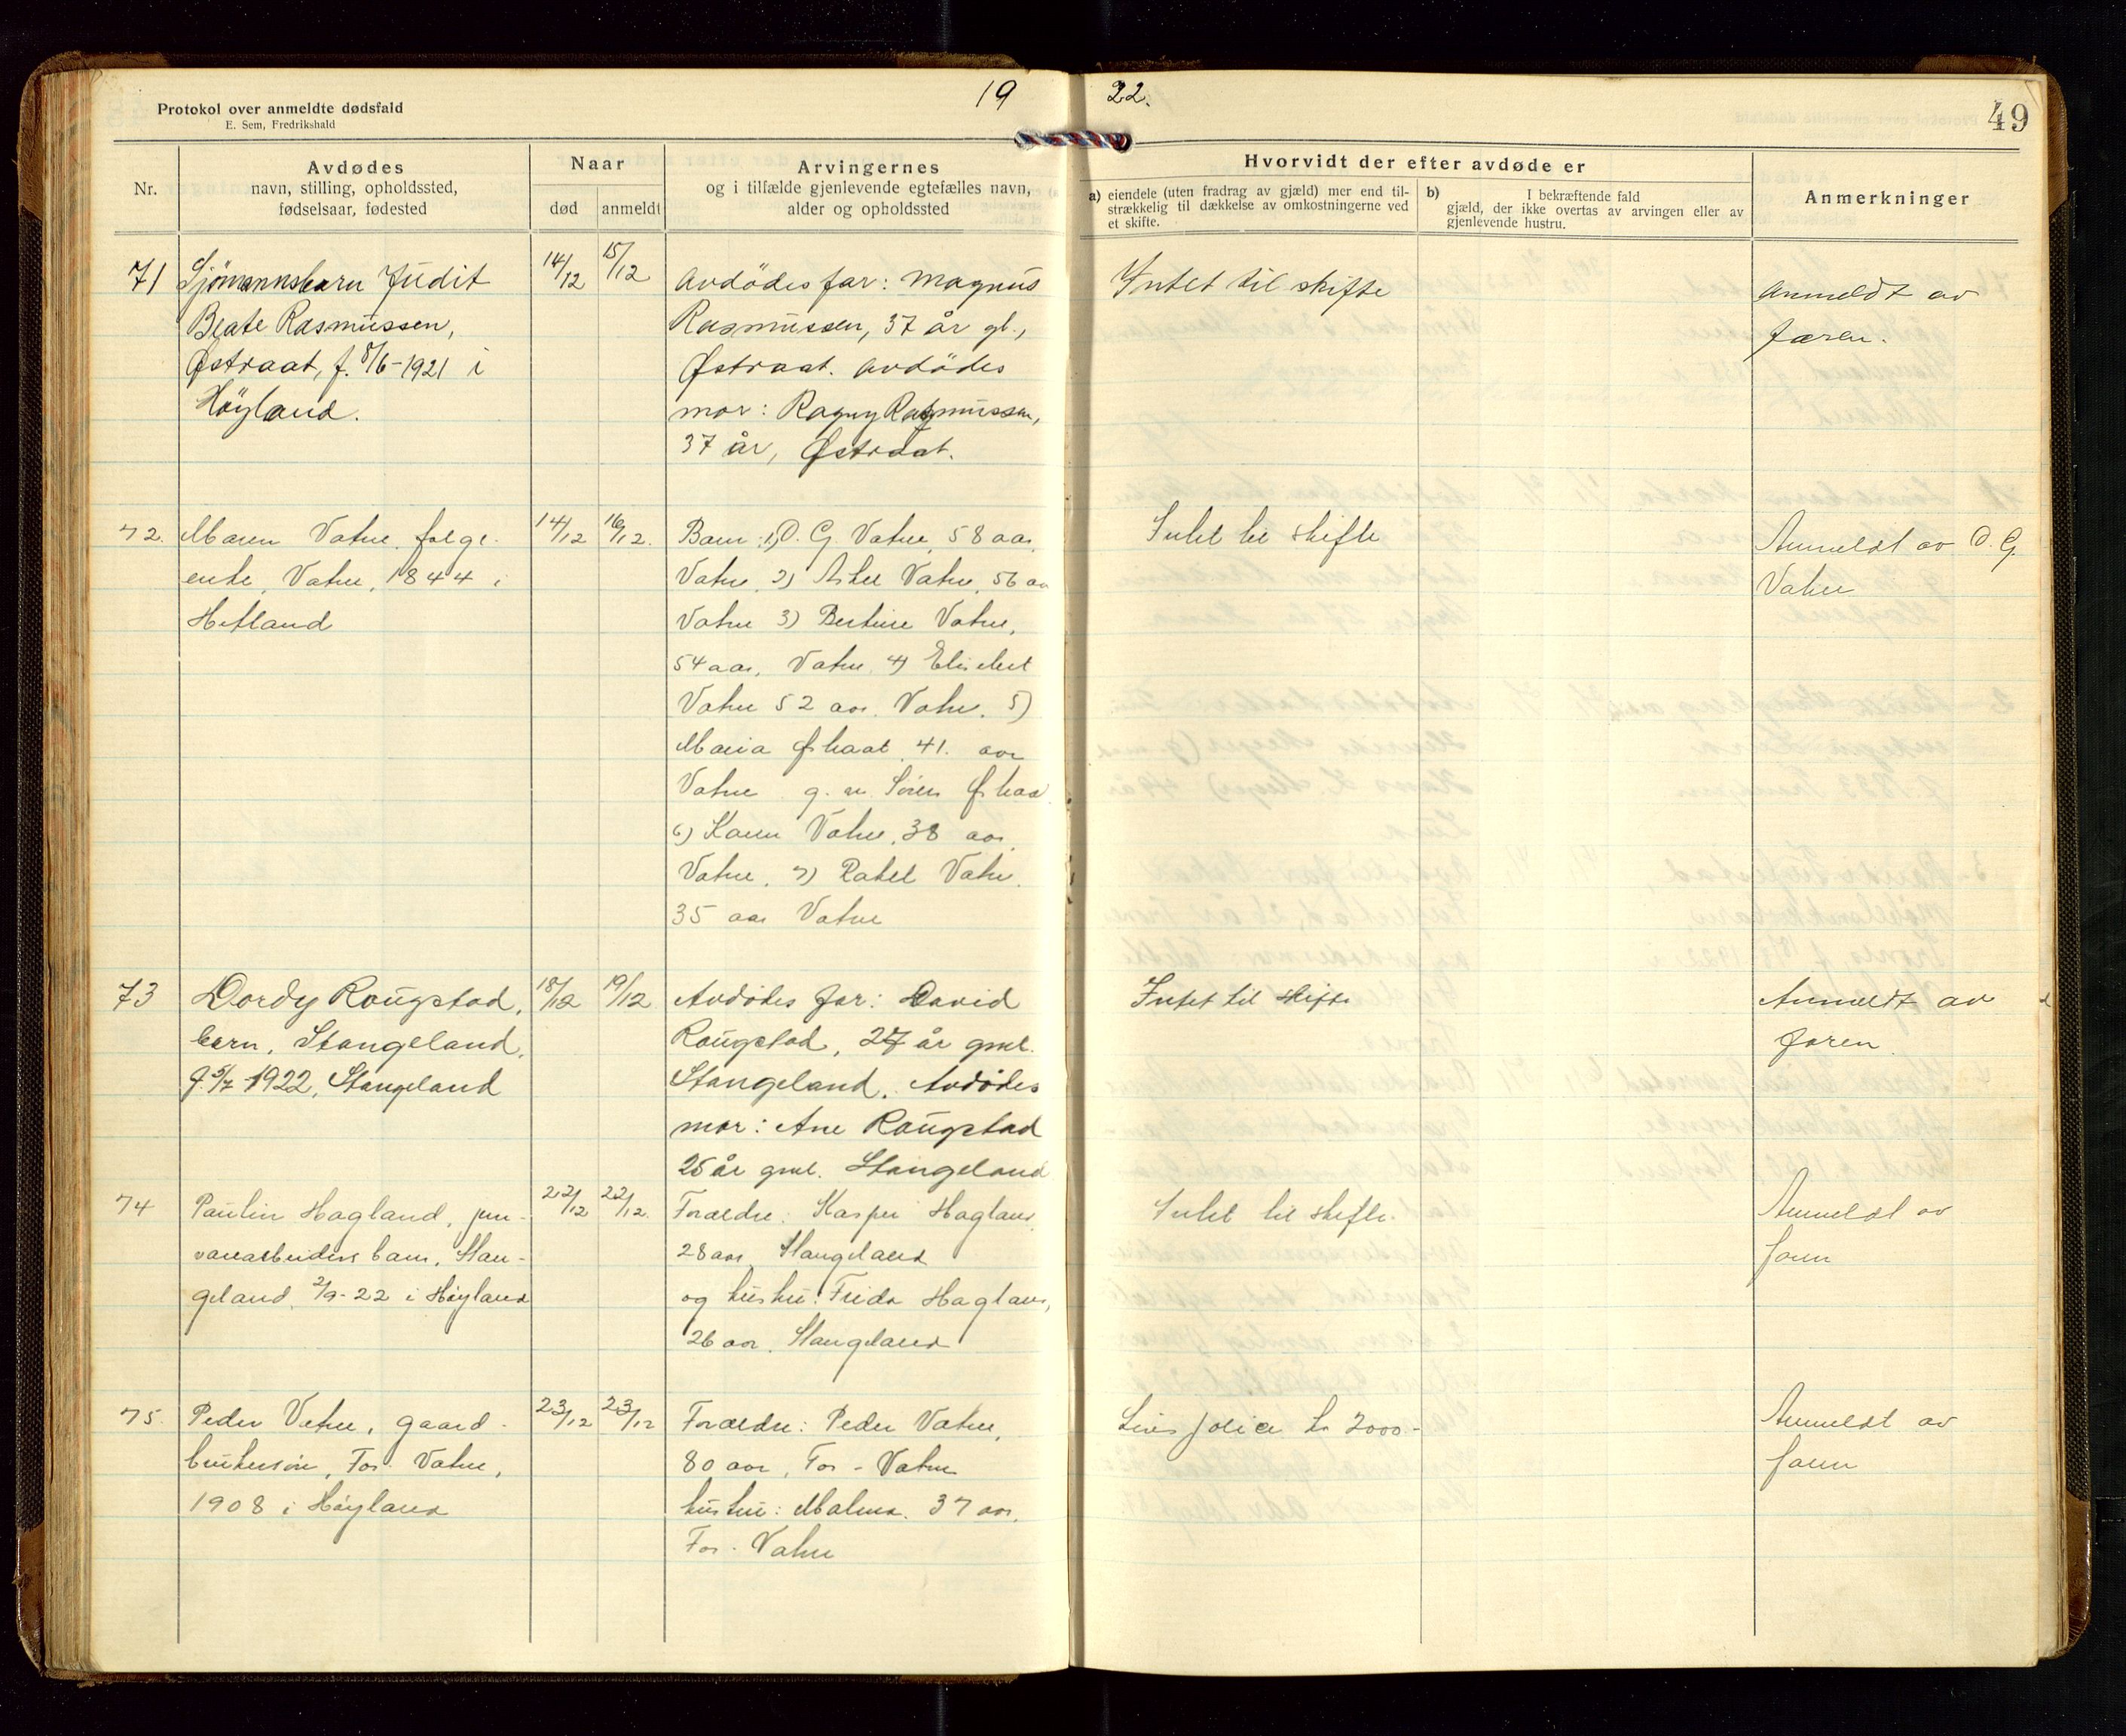 Protokol over anmeldte dødsfald
E. Sem, Fredrikshald
19 22.
49
Nr.
Avdødes
navn, stilling, opholdssted,
fødselsaar, fødested
Naar
død
anmeldt
Arvingernes
og i tilfælde gjenlevende egtefælles navn,
alder og opholdssted
Hvorvidt der efter avdøde er
a) eiendele (uten fradrag av gjæld) mer end til-
strækkelig til dækkelse av omkostningerne ved
et skifte.
b) I bekræftende fald
gjæld, der ikke overtas av arvingen eller av
gjenlevende hustru.
Anmerkninger
71
Sjömannsbarn Judit
Beate Rasmussen,
Østraat, f. 8/6-1921 i
Høyland.
14/12
15/12
Avdödes far: Magnus
Rasmussen, 37 år gl.,
Østraat. Avdödes
mor: Ragny Rasmussen,
37 år, Østraat.
Intet til skifte
Anmeldt av
faren.
72.
Maren Vatne, folge-
enke, Vatne, 1844 i
Hetland
14/12
16/12.
Barn: 1) O. G. Vatne, 58 aar
Vatne, 2) Vatne, 56 aar
Vatne 3) Bertine Vatne,
54 aar, Vatne 4) Elisabet
Vatne 52 aar. Vatne. 5)
Maria Østraat 41. aar
Vatne g. m. Sören Østraat
6) Karen Vatne, 38 aar,
Vatne, 7) Rakel Vatne.
35 aar Vatne
Intet til skifte
Anmeldt av O. G.
Vatne
73
Dordy Rougstad,
barn, Stangeland,
f. 5/7-1922, Stangeland
18/12
19/12
Avdödes far: David
Rougstad, 27 år gml.
Stangeland. Avdödes
mor: Ane Rougstad
25 år gml. Stangeland
Intet til skifte
Anmeldt av
faren
74
Paulin Hagland, jern-
varearbeiders barn, Stan-
geland, 2/9-22 i Høyland
22/12
22/12.
Forældre: Kasper Hagland
28 aar, Stangeland
og hustru: Frida Hagland,
26 aar, Stangeland
Intet til skifte.
Anmeldt av
faren
75.
Peder Vatne, gaard-
brukersön, Fos-Vatne,
1908 i Høyland
23/12
23/12
Forældre: Peder Vatne,
80 aar, Fos-Vatne
hustru: Malena. 37 aar,
Fos-Vatne
Livspolice kr 2000.-
Anmeldt av
faren